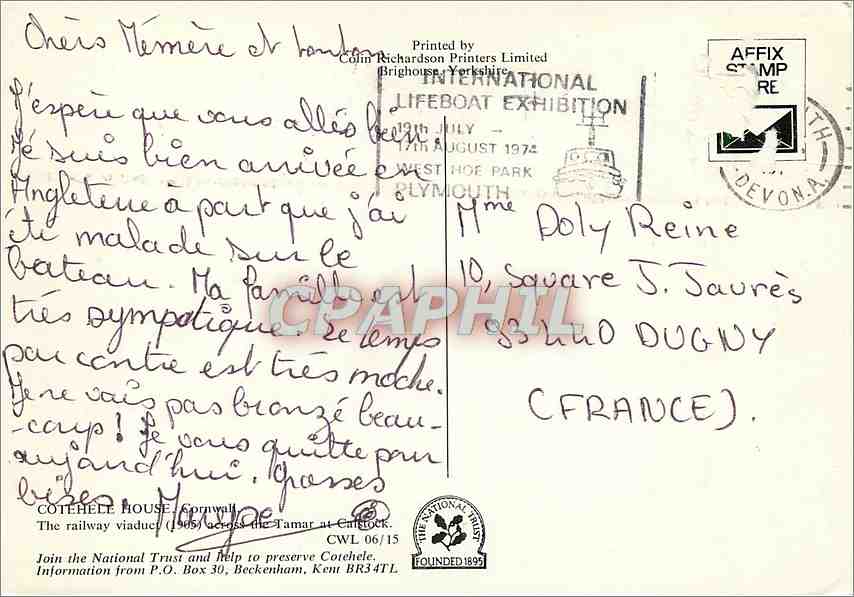 Chèrs Mémère et tonton
J'espère que vous allés bien.
Je suis bien arrivée en
Angleterre à part que j'ai
été malade sur le
bateau. Ma famille est
très sympatique. Le temps
par contre est très moche.
Je ne vais pas bronzé beau-
-coup! Je vous quitte pour
aujourd'hui. Grosses
bises.
Printed by
Colin Richardson Printers Limited
Brighouse, Yorkshire
INTERNATIONAL
LIFEBOAT EXHIBITION
19th JULY -
17th AUGUST 1974
WEST HOE PARK
PLYMOUTH
AFFIX
STAMP
DEVON.A.
Mme Doly Reine
10, Square J. Jaurès
93440 DUGNY
(FRANCE).
CPAPHIL
COTEHELE HOUSE, Cornwall.
The railway viaduct (1905) across the Tamar at Calstock.
CWL 06/15
Join the National Trust and help to preserve Cotehele.
Information from P.O. Box 30, Beckenham, Kent BR3 4TL
THE NATIONAL TRUST
FOUNDED 1895